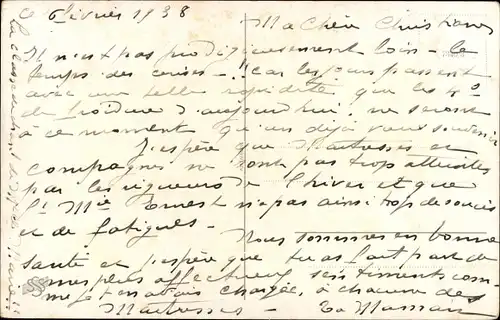 Février 1938
Ma Chère Christiane
Il n'est pas prodigieusement loin - le
temps des cerises - !! car les jours passent
avec une telle rapidité que les
de froidure d'aujourd'hui ne seront
à ce moment qu'un déjà vieux souvenir
J'espère que Maîtresses et
compagnes ne sont pas trop atteintes
par les rigueurs de l'hiver et que
Ernest n'a pas ainsi trop de soucis
et de fatigues.
Nous sommes en bonne
santé et j'espère que tu as fait part de
mes plus affectueux sentiments com
me je t'en avais chargée, à chacune des
Maîtresses - Ta Maman